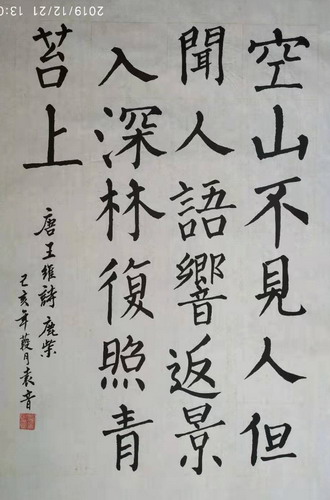 2019/12/21 13:0
空山不見人但
聞人語響返景
入深林復照青
苔上
唐王維詩鹿柴
己亥年葭月袁音